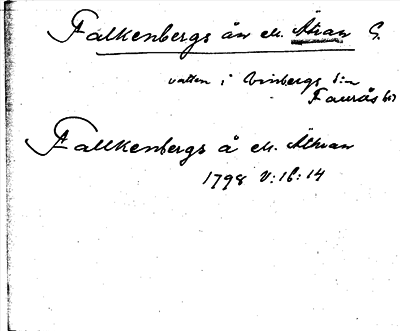 Falkenbergs ån el. Ätran G.
vatten i Vinbergs s:n
Faurås hd
Falkenbergs å el. Ätran
1798 V:16:14